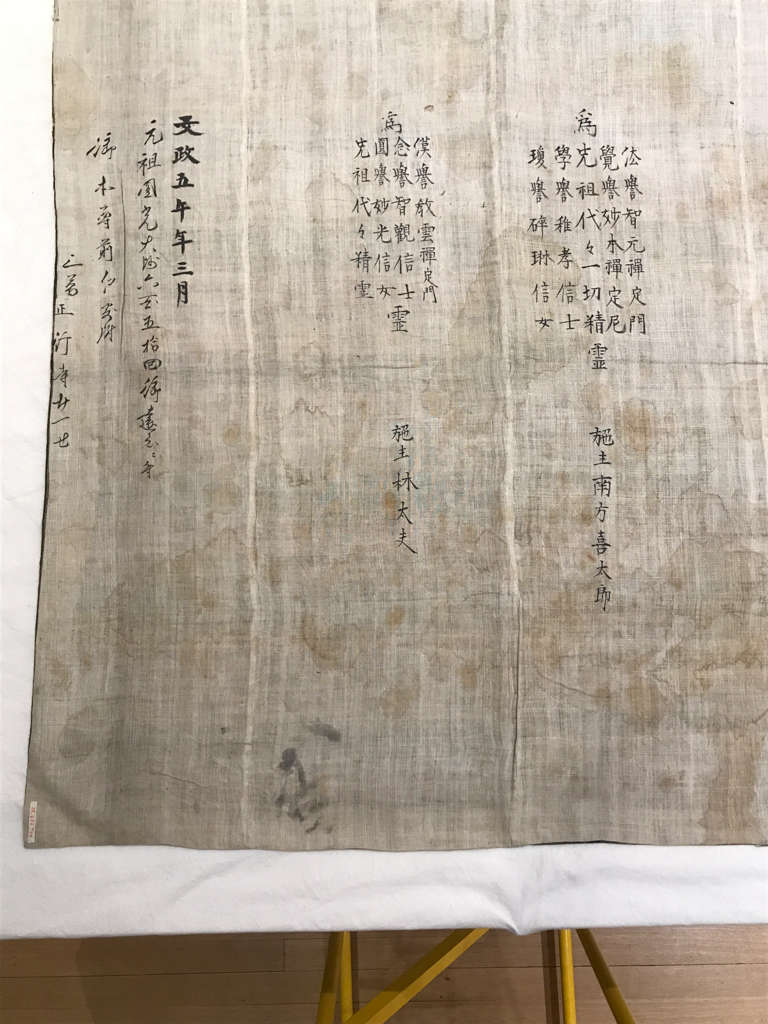 為
法譽智元禪定門
覺譽妙本禪定尼
先祖代々一切精霊
學譽稚孝信士
瓊譽碑琳信女
施主南方喜太郎
為
漢譽教雲禪定門
念譽智觀信士霊
圓譽妙光信女
先祖代々精霊
施主林太夫
文政五午年三月
元祖圓光大師六百五拾回
御本尊前
正行寺廿一世